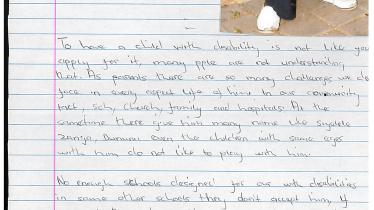 To have a child with disability is not like you
apply for it, many ppl are not understanding
that. As parents there are so many challenges we do
face in every aspect life of him. In our community
, Church, family and hospitals. At the
sometime there give him many name like
even the children with same ages
with him do not like to play with him.
No enough schools designed for our with disabilities
in some other schools they don't accept him, if